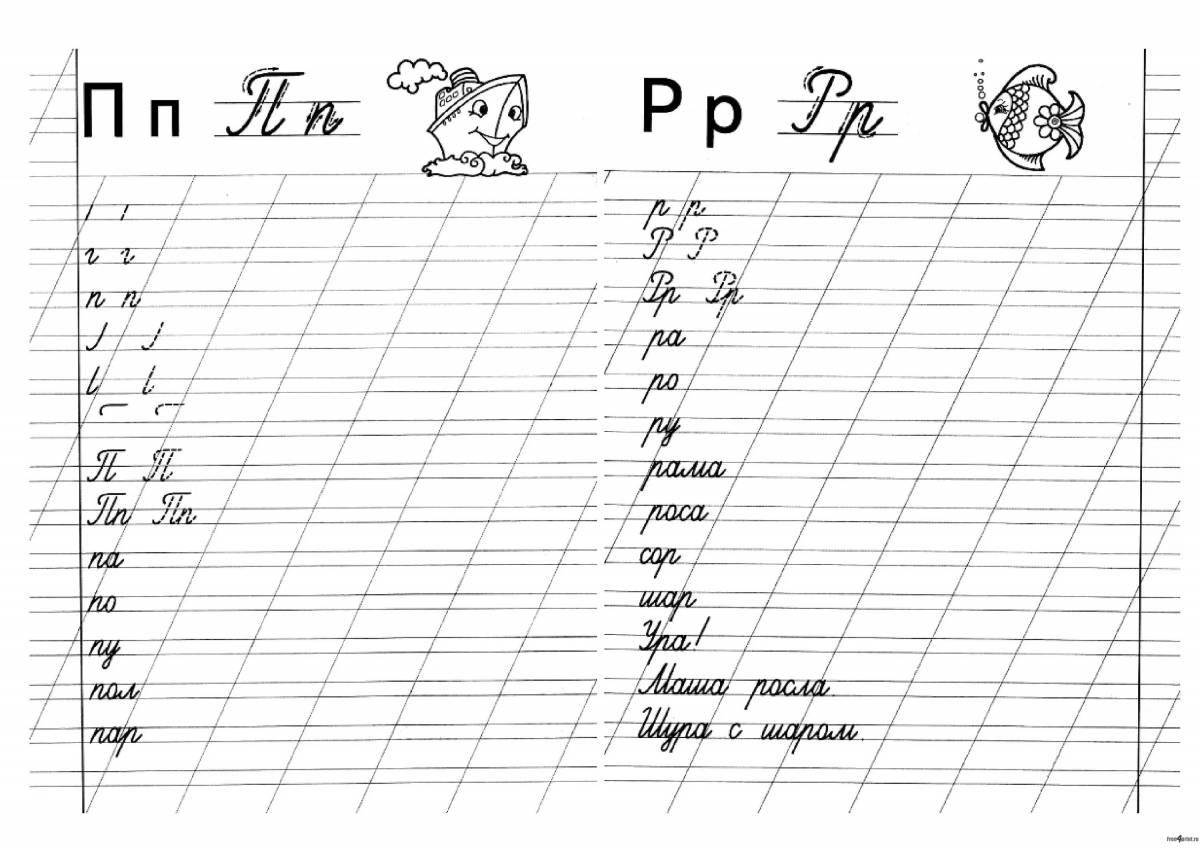 П п П п
п п
П П
Пп Пп
па
по
пу
пол
пар
Р р Р р
р р
Р Р
Рр Рр
ра
ро
ру
рама
роса
сор
шар
Ура!
Маша росла.
Шура с шаром.
free4printer.ru